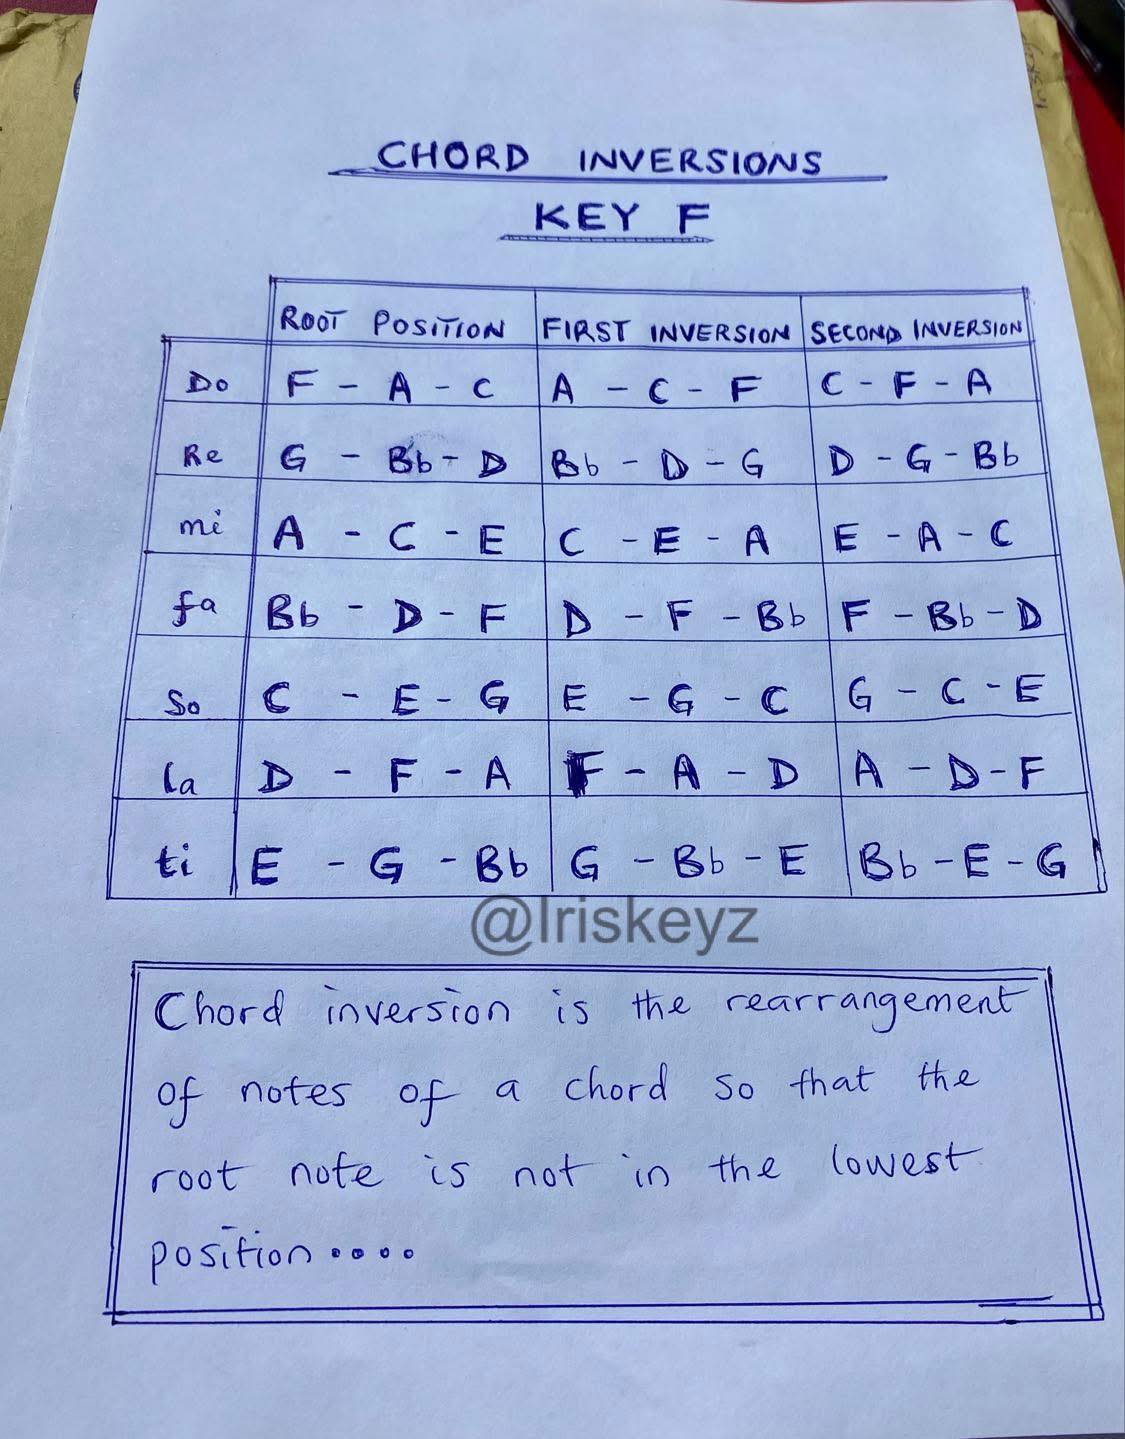 CHORD INVERSIONS
KEY F
ROOT POSITION FIRST INVERSION SECOND INVERSION
Do F - A - C A - C - F C - F - A
Re G - Bb - D Bb - D - G D - G - Bb
mi A - C - E C - E - A E - A - C
fa Bb - D - F D - F - Bb F - Bb - D
So C - E - G E - G - C G - C - E
la D - F - A F - A - D A - D - F
ti E - G - Bb G - Bb - E Bb - E - G
@Iriskeyz
Chord inversion is the rearrangement
of notes of a chord so that the
root note is not in the lowest
position....